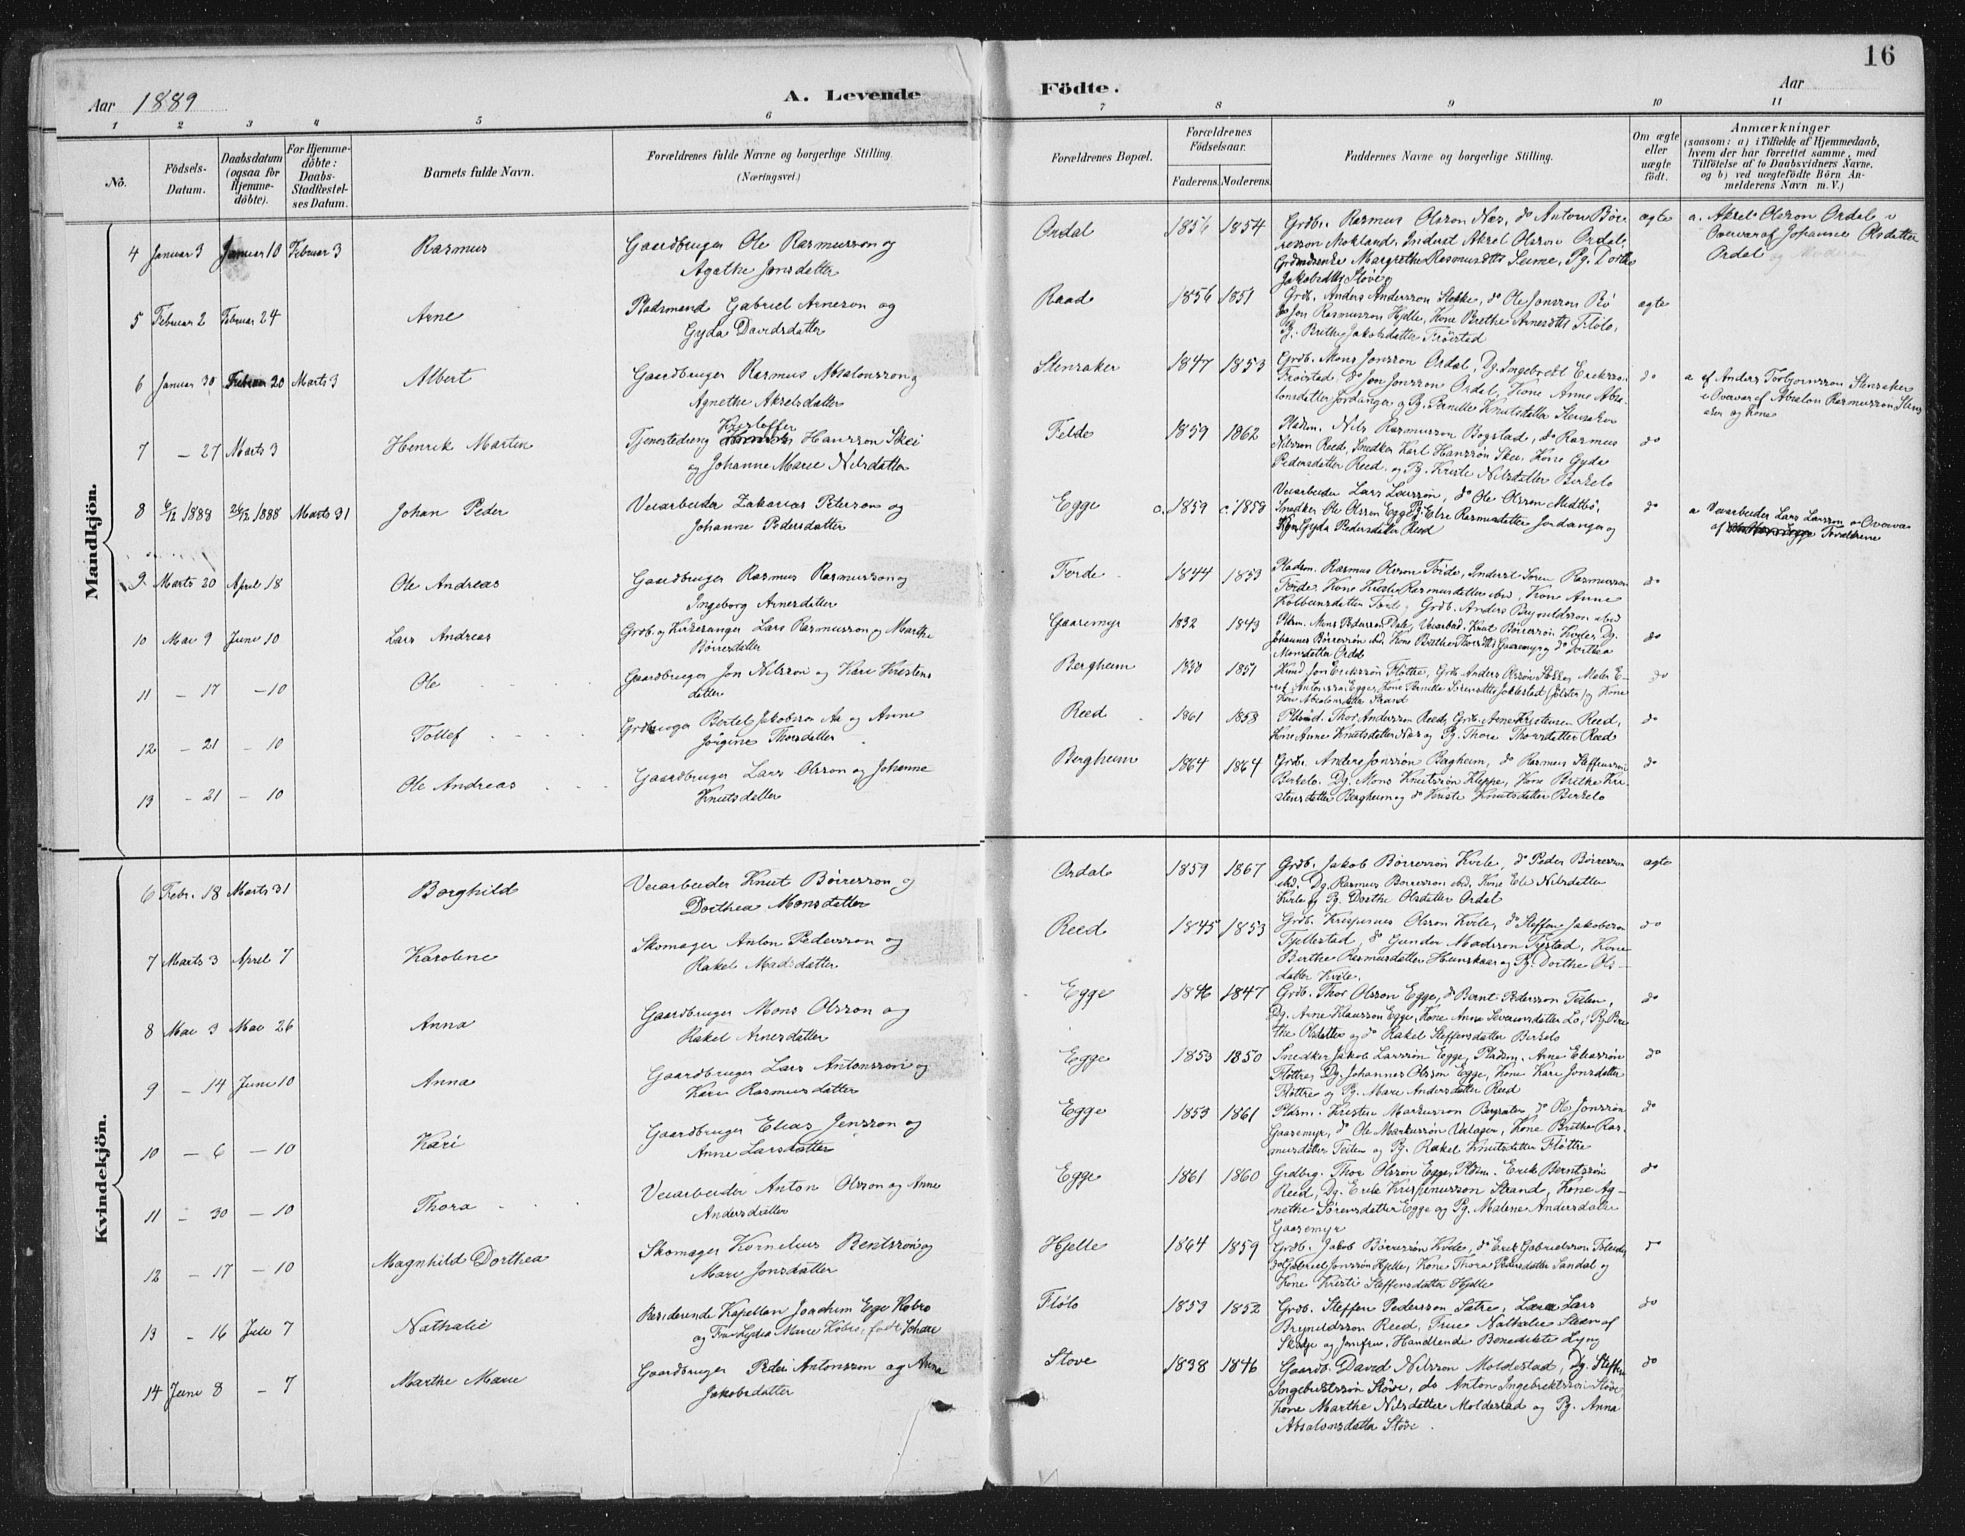 16
Aar 1889
A. Levende
Födte.
Aar
1 2 3 4 5 6 7 8 9 10 11
No.
Födsels-
Datum.
Daabsdatum
(ogsaa for
Hjemme-
döbte).
For Hjemme-
döbte:
Daabs-
Stadfæstel-
ses Datum.
Barnets fulde Navn.
Forældrenes fulde Navne og borgerlige Stilling.
(Næringsvei.)
Forældrenes Bopæl.
Forældrenes
Födselsaar.
Faderens. Moderens.
Faddernes Navne og borgerlige Stilling.
Om ægte
eller
uægte
födt.
Anmærkninger
(saasom: a) i Tilfælde af Hjemmedaab,
hvem der har forrettet samme, med
Tilföielse af to Daabsvidners Navne.
og b) ved uægtefödte Börn An-
melderens Navn m. V.)
Mandkjön.
4 Januar 3 Januar 10 Februar 3 Rasmus
Gaardbruger Ole Rasmusson og
Agathe Jonsdatter
Ordal 1856 1854
Grdb. Rasmus Olsson Nes, do Anton Bör-
resson Mokland, Inderst Aksel Olsson Ordal,
Margrethe Rasmusdtts Seime, Pg. Dorthe
Jakobsdtts Støve
ægte
a. Aksel Olsson Ordal i
Overvær af Johanne Olsdatter
Ordal og Moderen
5 Februar 2 Februar 24 Arne
Pladsmand Gabriel Arneson og
Gyda Davidsdatter
Raad 1856 1851
Grdb. Anders Andersson Stokke, do Ole Jonsson Bö
do Jon Rasmusson Hjelle, Kone Brethe Arnesdtts Flölo,
Pg. Brithe Jakobsdatter Fröistad
ægte
6 Januar 30 Februar 20 Marts 3 Albert
Gaardbruger Rasmus Absalonsson og
Agnethe Akselsdatter
Stensaker 1847 1853
Grdb. Mons Jonsson Ordal, Dg. Ingebredt Eriksson
Fröistad, do Jon Jonsson Ordal, Kone Anne Absa-
lonsdatter Jordanger og Pg. Pernille Knutsdatter Stensaker
do
a af Anders Torbjornsson Stensaker
i Overvær af Absalon Rasmusson Stens
aker og Kone
7 - 27 Marts 3 Henrik Martin
Kristoffer
Tjenestedreng Hansson Skei
og Johanne Marie Nilsdatter
Felde 1859 1862
Pladsm. Nils Rasmusson Bogstad, do Rasmus
Nilsson Reed, Snedker Karl Hansson Skei, Kone Gyda
Pedersdatter Reed og Pg. Kristi Nilsdatter Birkelo
do
8 6/12 1888 26/12 1888 Marts 31 Johan Peder
Veiarbeider Zakarias Peterson og
Johanne Pedersdatter
Egge c. 1859 c. 1858
Veiarbeider Lars Larsson, do Ole Olsson Midtbö,
Snedker Ole Olsson Egge, Pg. Else Rasmusdatter Jordanger og
Kone Gyda Pedersdatter Reed
do
a Veiarbeider Lars Larsson i Overvær
af Forældrene
9. Marts 20 April 18 Ole Andreas
Gaardbruger Rasmus Rasmusson og
Ingeborg Arnesdatter
Förde 1844 1853
Pladsm. Rasmus Olsson Förde, Inderst Sören Rasmusson
Förde, Kone Kristi Rasmusdatter ibid, Kone Anne
Kolbeinsdatter Förde, Grdb. Anders Brynildsson ibid
do
10 Mai 9 Juni 10 Lars Andreas
Grdb. og Kirkesanger Lars Rasmusson og Marthe
Börresdatter
Gaasemyr 1832 1843
Pldsm. Mons Pedersson Dale, Veiarbeid. Knut Börresson Kvile, Dg.
Johannes Börresson ibid, Kone Berthe Thorsdtts Gaasemyr og do Dorthea
Monsdatter Ordal
do
11 - 17 - 10 Ole
Gaardbruger Jon Nilsson og Kari Kristens
datter
Bergheim 1851
Jon Eriksson Flöttre, Grdb. Anders Olsson Stokke, Maler E-
rik Antonsson Egge, Kone Pernille Sörensdtts Joklestad (Jölster) og Kone
Kari Absalonsdatter Strand
do
12 - 21 - 10 Tollef
Grdbruger Bertel Jakobson Aa og Anne
Jörgine Thorsdatter
Reed 1861 1858
Pldsmd. Thor Andersson Reed, Grdb. Arne Kristensen Reed,
Kone Anne Knutsdatter Nes og Pg. Thora Thorsdatter Reed
do
13 - 21 - 10 Ole Andreas
Gaardbruger Lars Olsson og Johanne
Knutsdatter
Bergheim 1864 1864
Grdb. Anders Jonsson Bagheim, do Rasmus Steffensson
Birkelo, Dg. Mons Knutsson Kleppe, Kone Brithe Kri-
stensdatter Bergheim og do Kristi Knutsdatter Birkelo
do
Kvindekjön.
6 Febr. 18 Marts 31 Borghild
Veiarbeider Knut Börresson og
Dorthea Monsdatter
Ordal 1859 1867
Grdb. Jakob Börresson Kvile, do Peder Börresson
ibid. Dg. Rasmus Börresson ibid. Kone Eli Nilsdatter
Kvile og Pg. Dorthe Olsdatter Ordal
ægte
7 Marts 3 April 7 Karoline
Skomager Anton Pedersson og
Rakel Madsdatter
Reed 1845 1853
Grdb. Krispinus Olsson Kvile, do Steffen Jakobsson
Fjellestad, do Gunder Madsson Tystad, Kone
Berthe Rasmusdatter Hunskaar og Pg. Dorthe Ols-
datter Kvile.
do
8 Mai 3 Mai 26 Anna
Gaardbruger Mons Olsson og
Rakel Arnesdatter
Egge 1846 1847
Grdb. Thor Olsson Egge, do Bernt Pedersson Teilen,
Dg. Arne Klausson Egge, Kone Anna Severinsdatter Lo, Pg. Bri-
the Olsdatter og do Rakel Steffensdatter Birkelo
do
9 - 14 Juni 10 Anna
Gaardbruger Lars Antonsson og
Kari Rasmusdatter
Egge 1853 1850
Snedker Jakob Larsson Egge, Pladsm. Arne Eliasson
Flöttre, Dg. Johannes Olsson Egge, Kone Kari Jonsdatter
Flöttre og Pg. Mari Andersdatter Reed
do
10 - 6 - 10 Kari
Gaardbruger Elias Jensson og
Anne Larsdatter
Egge 1853 1861
Pldsm. Kristen Markusson Bergsaker, do Ole Jonsson
Gaasemyr, do Ole Markusson Valager, Kone Brithe Ras-
musdatter Teilen og Pg. Rakel Knutsdatter Flöttre
do
11 - 30 - 10 Thora
Veiarbeider Anton Olsson og Anne
Andersdatter
Egge 1861 1860
Grdbrg. Thor Olsson Egge, Pldsm. Erik Berntsson
Reed, Dg. Erik Krispinusson Strand, Kone Ag-
nethe Sörensdatter Egge og Pg. Malene Andersdatter
Gaasemyr
do
12 - 17 - 10 Magnhild Dorthea
Skomager Kornelius Bentsson og
Mari Jonsdatter
Hjelle 1864 1859
Grdb. Jakob Börresson Kvile, do Erik Gabrielsson
do Gabriel Jonsson Hjelle, Kone Thora Pedersdatter Sandal og
Kone Kristi Steffensdatter Hjelle
13 - 16 Juli 7 Nathalie
Residerende Kapellan Joachim Ege Kobro
og Fru Lydia Marie Kobro, född
Flölo 1853 1852
Grdb. Steffen Pedersson Sætre, Lærer Lars
Brynildsson Reed, Frue Nathalie Steen af
Skodje og Jomfru, Handlende Benedikte Lyng
do
14 Juni 8 - 7 Marthe Marie
Gaardbruger Peder Antonsson og Anna
Jakobsdatter
Stove 1838 1846
Gaardb. David Nilsson Moldestad, Dg. Steffen
Ingebretsson Stöve, do Anton Ingebrektsson Stöve,
Kone Marthe Nilsdatter Moldestad og Pg. Anna
Absalonsdatter Stöve.
do